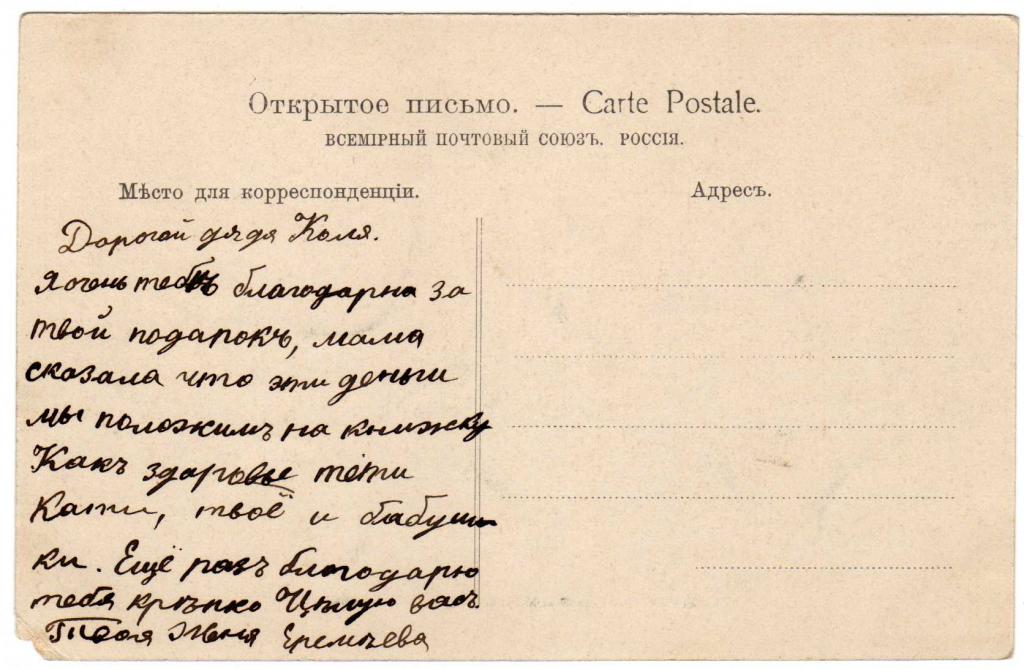 Открытое письмо. — Carte Postale.
ВСЕМІРНЫЙ ПОЧТОВЫЙ СОЮЗЪ. РОССІЯ.
Мѣсто для корреспонденціи.
Адресъ.
Дорогой дядя Коля.
Я очень тебѣ благодарна за
твой подарокъ, мама
сказала что эти деньги
мы положимъ на книжку
Какъ здоровье тёти
Кати, твоё и бабуш
ки. Ещё разъ благодарю
тебя крѣпко Цѣлую васъ.
Твоя Женя Еремѣева